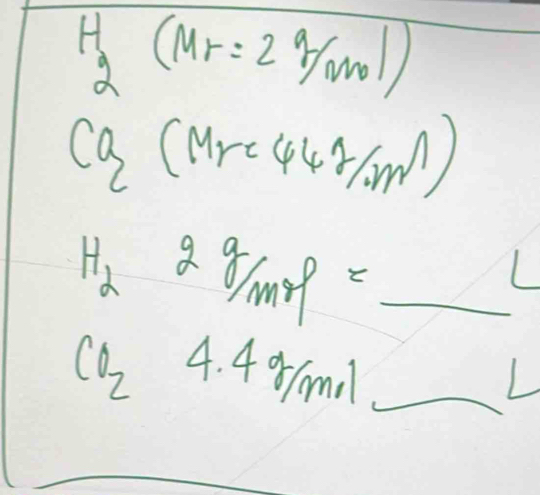 H2 (Mr = 2 g/mol)
CO2 (Mr = 44 g/mol)
H2 2 g/mol = ____ L
CO2 4.4 g/mol ____ L